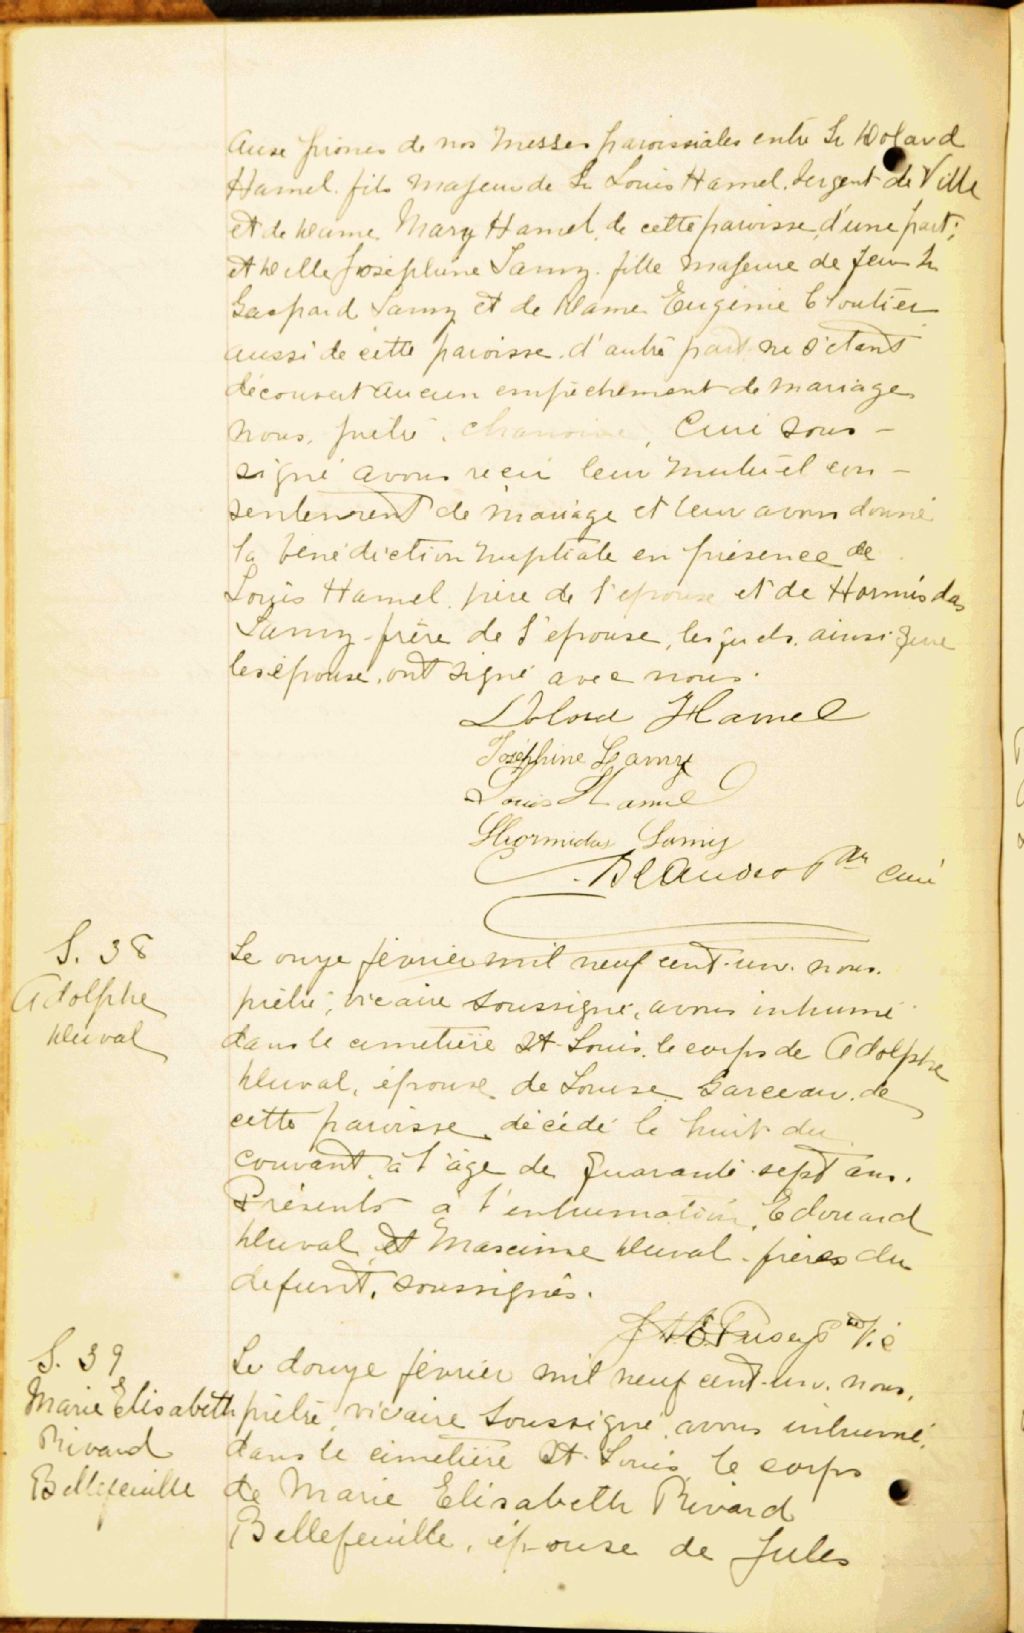 aux prônes de nos messes paroissiales entre Sr Dolard
Hamel fils majeur de Sr Louis Hamel, Sergent de Ville
et de Dame Mary Hamel, de cette paroisse, d'une part;
et Delle Joséphine Lamy fille majeure de feu Sr
Gaspard Lamy et de Dame Eugénie Cloutier
aussi de cette paroisse d'autre part ne s'étant
découvert aucun empêchement de mariage
nous, prêtre, chanoine, Curé sous-
signé avons reçu leur mutuel con-
sentement de mariage et leur avons donné
la bénédiction nuptiale en présence de
Louis Hamel père de l'épouse et de Hormisdas
Lamy frère de l'épouse, lesquels, ainsi que
les épouse, ont signé avec nous.
Dolord Hamel
Joséphine Lamy
Louis Hamel
Hormidas Lamy
Ptre curé
S. 38
Adolphe
Duval
Le onze février mil neuf cent-un. nous.
prêtre, vicaire soussigné, avons inhumé
dans le cimetière St Louis, le corps de Adolphe
Duval, époux de Louise Garceau de
cette paroisse, décédé le huit du
courant à l'âge de quarante-sept ans.
Présents à l'inhumation, Edouard
Duval et Maxime Duval frères du
défunt, soussignés.
Ptre Vic
S. 39
Marie Elisabeth
Rivard
Bellefeuille
Le douze février mil neuf cent-un. nous,
prêtre, vicaire soussigné, avons inhumé,
dans le cimetière St Louis, le corps
de Marie Elisabeth Rivard
Bellefeuille, épouse de Jules